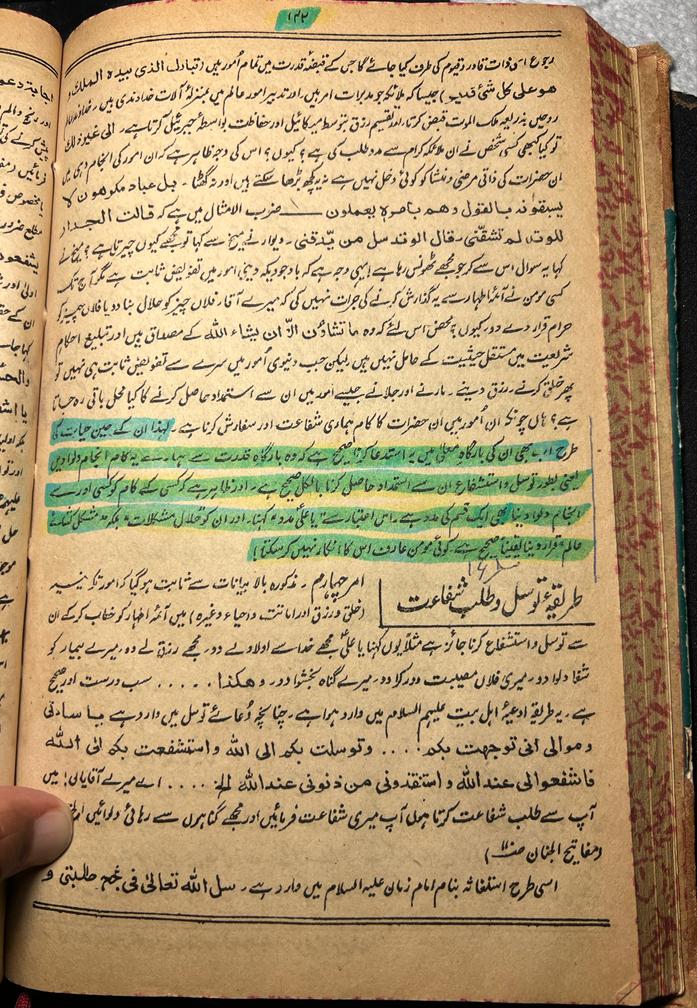 ۱۴۲
رجوع اسی ذات قادر و قیوم کی طرف کیا جائے گا جس کے قبضۂ قدرت میں تمام امور ہیں (تبارک الذی بیدہ الملک و
ھو علی کل شئ قدیر) جیسا کہ ملائکہ جو مدبرات امر ہیں اور تدبیر امور عالم میں بمنزلۂ آلات خداوندی ہیں۔ خداوند عالم
روحیں بذریعہ ملک الموت قبض کرتا، اور تقسیم رزق بتوسط میکائیل اور حفاظت بواسطۂ جبرئیل کرتا ہے۔ الی غیر ذلک
تو کیا کبھی کسی شخص نے ان ملائکہ کرام سے مدد طلب کی ہے؟ کیوں؟ اس کی وجہ ظاہر ہے کہ ان امور کی انجام دہی میں
ان حضرات کی ذاتی مرضی و منشا کو کوئی دخل نہیں ہے نہ یہ کچھ بڑھا سکتے ہیں اور نہ گھٹا۔ بل عباد مکرمون لا
یسبقونہ بالقول وھم بامرہ یعملون ــــــ ضرب الامثال میں ہے کہ قالت الجدار
للوتد لم تشقنی، قال الوتد سل من یدقنی۔ دیوار نے میخ سے کہا تو مجھے کیوں چیرتا ہے؟ میخ نے
کہا یہ سوال اس سے کر جو مجھے ٹھونس رہا ہے! یہی وجہ ہے کہ باوجودیکہ دینی امور میں تفویض ثابت ہے مگر آج تک
کسی مومن نے آئمۂ اطہار سے یہ گذارش کرنے کی جرات نہیں کی کہ میرے آقا، فلاں چیز کو حلال بنا دو یا فلاں چیز کو
حرام قرار دے دو۔ کیوں؟ محض اس لئے کہ وہ ما تشاؤن الا ان یشاء اللہ کے مصداق ہیں اور تبلیغ احکام
شریعت میں مستقل حیثیت کے حامل نہیں ہیں لیکن جب دنیوی امور میں سرے سے تفویض ثابت ہی نہیں تو
پھر خلق کرنے، رزق دینے۔ مارنے اور جلانے جیسے امور میں ان سے استمداد حاصل کرنے کا کیا محل باقی رہ جاتا
ہے؟ ہاں چونکہ ان امور میں ان حضرات کا کام ہماری شفاعت اور سفارش کرنا ہے۔ لہذا ان کے حین حیات کی
طرح اب بھی ان کی بارگاہ معلیٰ میں یہ استدعا کرنا صحیح ہے کہ وہ بارگاہ قدرت سے ہمارے یہ کام انجام دلوا دیں
یعنی بطور توسل و استشفاع ان سے استمداد حاصل کرنا بالکل صحیح ہے۔ اور ظاہر ہے کہ کسی کے کام کو کسی اور سے
انجام دلوا دینا بھی ایک قسم کی مدد ہے۔ اس اعتبار سے "یا علیؑ مدد" کہنا۔ اور ان کو "حلال مشکلات" بلکہ "مشکل کشائے
عالم" قرار دینا یقیناً صحیح ہے۔ کوئی مومن عارف اس کا انکار نہیں کر سکتا!
طریقۂ توسل و طلب شفاعت
امر چہارم۔ مذکورہ بالا بیانات سے ثابت ہو گیا کہ امور تکوینیہ
(خلق و رزق اور اماتت و احیاء وغیرہ) میں آئمۂ اطہار کو خطاب کر کے ان
سے توسل و استشفاع کرنا جائز ہے مثلاً یوں کہنا یا علیؑ مجھے خدا سے اولاد لے دو۔ مجھے رزق لے دو۔ میرے بیمار کو
شفا دلوا دو۔ میری فلاں مصیبت دور کرا دو۔ میرے گناہ بخشوا دو۔ و ھکذا..... سب درست اور صحیح
ہے۔ یہ طریقہ ادعیۂ اہل بیت علیہم السلام میں وارد ہوا ہے۔ چنانچہ دعائے توسل میں وارد ہے یا ساداتی
و موالی انی توجھت بکم.... و توسلت بکم الی اللہ و استشفعت بکم الی اللہ
فاشفعوا لی عند اللہ و استنقذونی من ذنوبی عند اللہ الخ.... اے میرے آقایان! میں
آپ سے طلب شفاعت کرتا ہوں آپ میری شفاعت فرمائیں اور مجھے گناہوں سے رہائی دلوائیں
(مفاتیح الجنان
اسی طرح استغاثہ بنام امام زمان علیہ السلام میں وارد ہے۔ سل اللہ تعالیٰ فی نجح طلبتی و